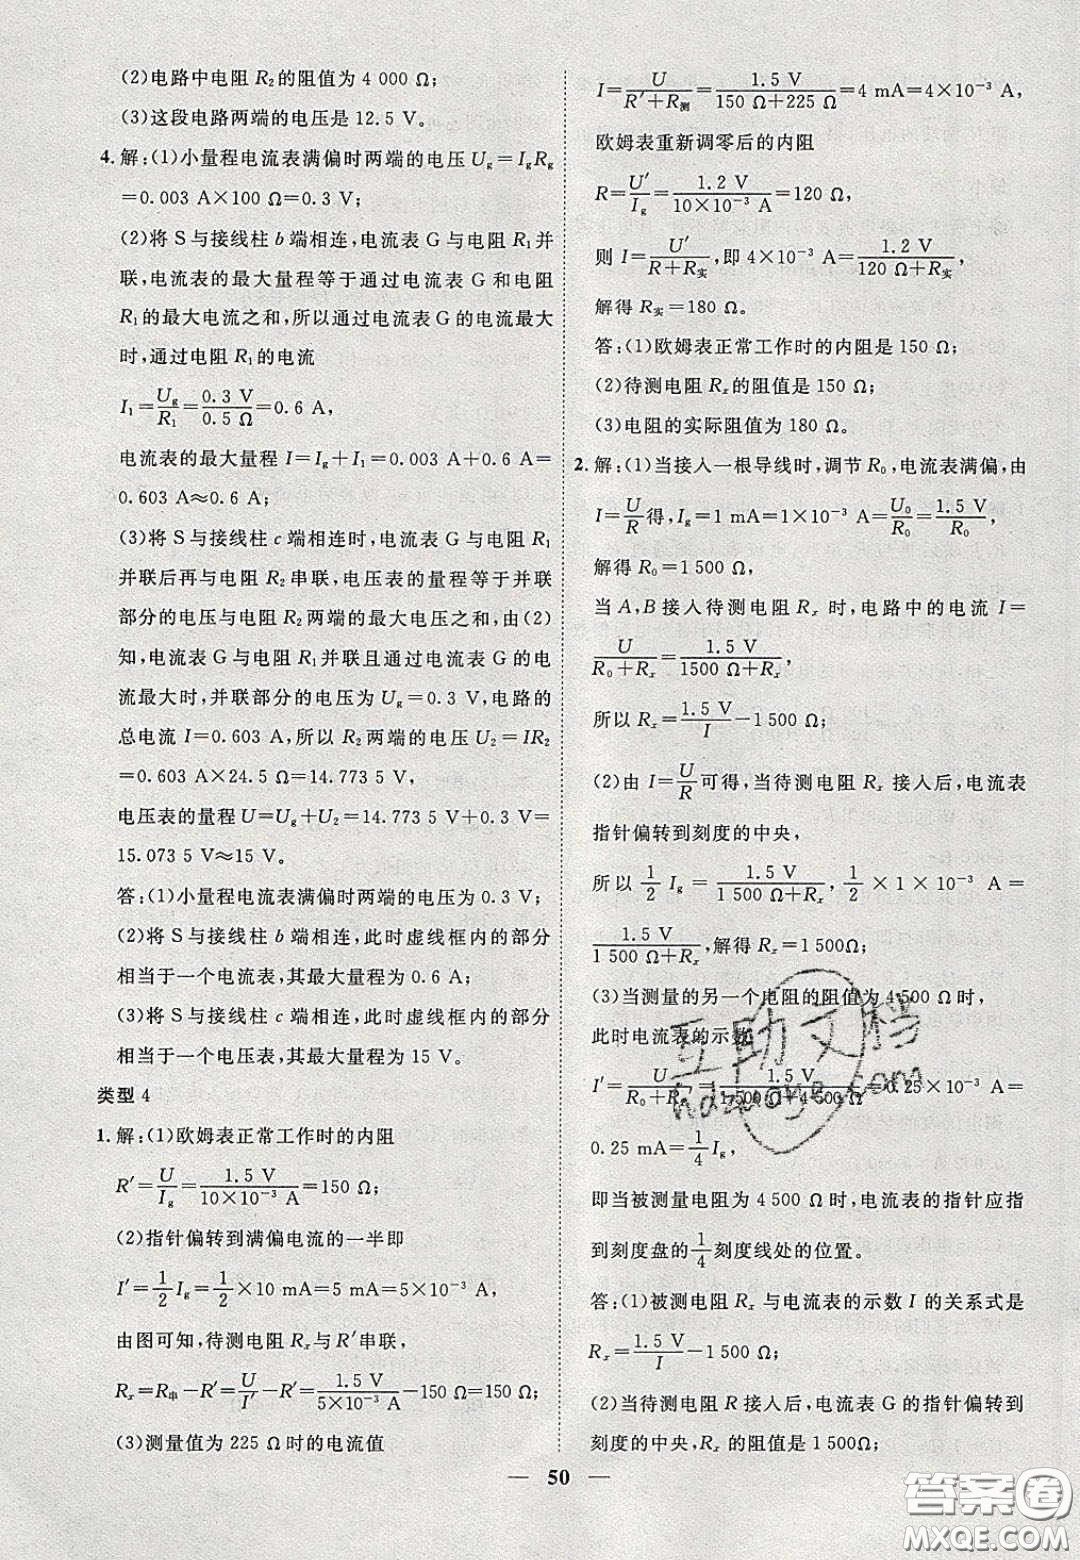 (2)电路中电阻 R₂的阻值为 4 000 Ω;
(3)这段电路两端的电压是 12.5 V。
4.解:(1)小量程电流表满偏时两端的电压 U_g=I_gR_g
=0.003 A×100 Ω=0.3 V;
(2)将 S 与接线柱 b 端相连,电流表 G 与电阻 R₁并
联,电流表的最大量程等于通过电流表 G 和电阻
R₁的最大电流之和,所以通过电流表 G 的电流最大
时,通过电阻 R₁的电流
I₁=U_g/R₁=0.3 V/0.5 Ω=0.6 A,
电流表的最大量程 I=I_g+I₁=0.003 A+0.6 A=
0.603 A≈0.6 A;
(3)将 S 与接线柱 c 端相连时,电流表 G 与电阻 R₁
并联后再与电阻 R₂串联,电压表的量程等于并联
部分的电压与电阻 R₂两端的最大电压之和,由(2)
知,电流表 G 与电阻 R₁并联且通过电流表 G 的电
流最大时,并联部分的电压为 U_g=0.3 V,电路的
总电流 I=0.603 A,所以 R₂两端的电压 U₂=IR₂
=0.603 A×24.5 Ω=14.773 5 V,
电压表的量程 U=U_g+U₂=14.773 5 V+0.3 V=
15.073 5 V≈15 V。
答:(1)小量程电流表满偏时两端的电压为 0.3 V;
(2)将 S 与接线柱 b 端相连,此时虚线框内的部分
相当于一个电流表,其最大量程为 0.6 A;
(3)将 S 与接线柱 c 端相连时,此时虚线框内的部分
相当于一个电压表,其最大量程为 15 V。
类型 4
1.解:(1)欧姆表正常工作时的内阻
R′=U/I_g=1.5 V/(10×10⁻³ A)=150 Ω;
(2)指针偏转到满偏电流的一半即
I′=1/2 I_g=1/2×10 mA=5×10⁻³ A,
由图可知,待测电阻 Rₓ与 R′串联,
Rₓ=R串-R′=U/I′-R′=1.5 V/(5×10⁻³ A)-150 Ω=150 Ω;
(3)测量值为 225 Ω时的电流值
I=U/(R′+R测)=1.5 V/(150 Ω+225 Ω)=4 mA=4×10⁻³ A,
欧姆表重新调零后的内阻
R=U′/I_g=1.2 V/(10×10⁻³ A)=120 Ω,
则 I=U′/(R+R实),即 4×10⁻³ A=1.2 V/(120 Ω+R实),
解得 R实=180 Ω。
答:(1)欧姆表正常工作时的内阻是 150 Ω;
(2)待测电阻 Rₓ的阻值是 150 Ω;
(3)电阻的实际阻值为 180 Ω。
2.解:(1)当接入一根导线时,调节 R₀,电流表满偏,由
I=U/R得,I_g=1 mA=1×10⁻³ A=U₀/R₀=1.5 V/R₀,
解得 R₀=1 500 Ω,
当 A,B 接入待测电阻 Rₓ 时,电路中的电流 I=
U/(R₀+Rₓ)=1.5 V/(1500 Ω+Rₓ),
所以 Rₓ=1.5 V/I-1 500 Ω;
(2)由 I=U/R可得,当待测电阻 Rₓ 接入后,电流表
指针偏转到刻度的中央,
所以 1/2 I_g=1.5 V/(1 500 Ω+Rₓ),1/2×1×10⁻³ A=
1.5 V/(1 500 Ω+Rₓ),解得 Rₓ=1 500Ω;
(3)当测量的另一个电阻的阻值为 4 500 Ω 时,
此时电流表的示数
I′=U/(R₀+Rₓ)=1.5 V/(1 500 Ω+4 500 Ω)=0.25×10⁻³ A=
0.25 mA=1/4 I_g,
即当被测量电阻为 4 500 Ω时,电流表的指针应指
到刻度盘的1/4刻度线处的位置。
答:(1)被测电阻 Rₓ 与电流表的示数 I 的关系式是
Rₓ=1.5 V/I-1 500 Ω;
(2)当待测电阻 R 接入后,电流表 G 的指针偏转到
刻度的中央,Rₓ 的阻值是 1 500Ω;
50
互助文档
hdzuoye.com
答案圈
MXQE.COM